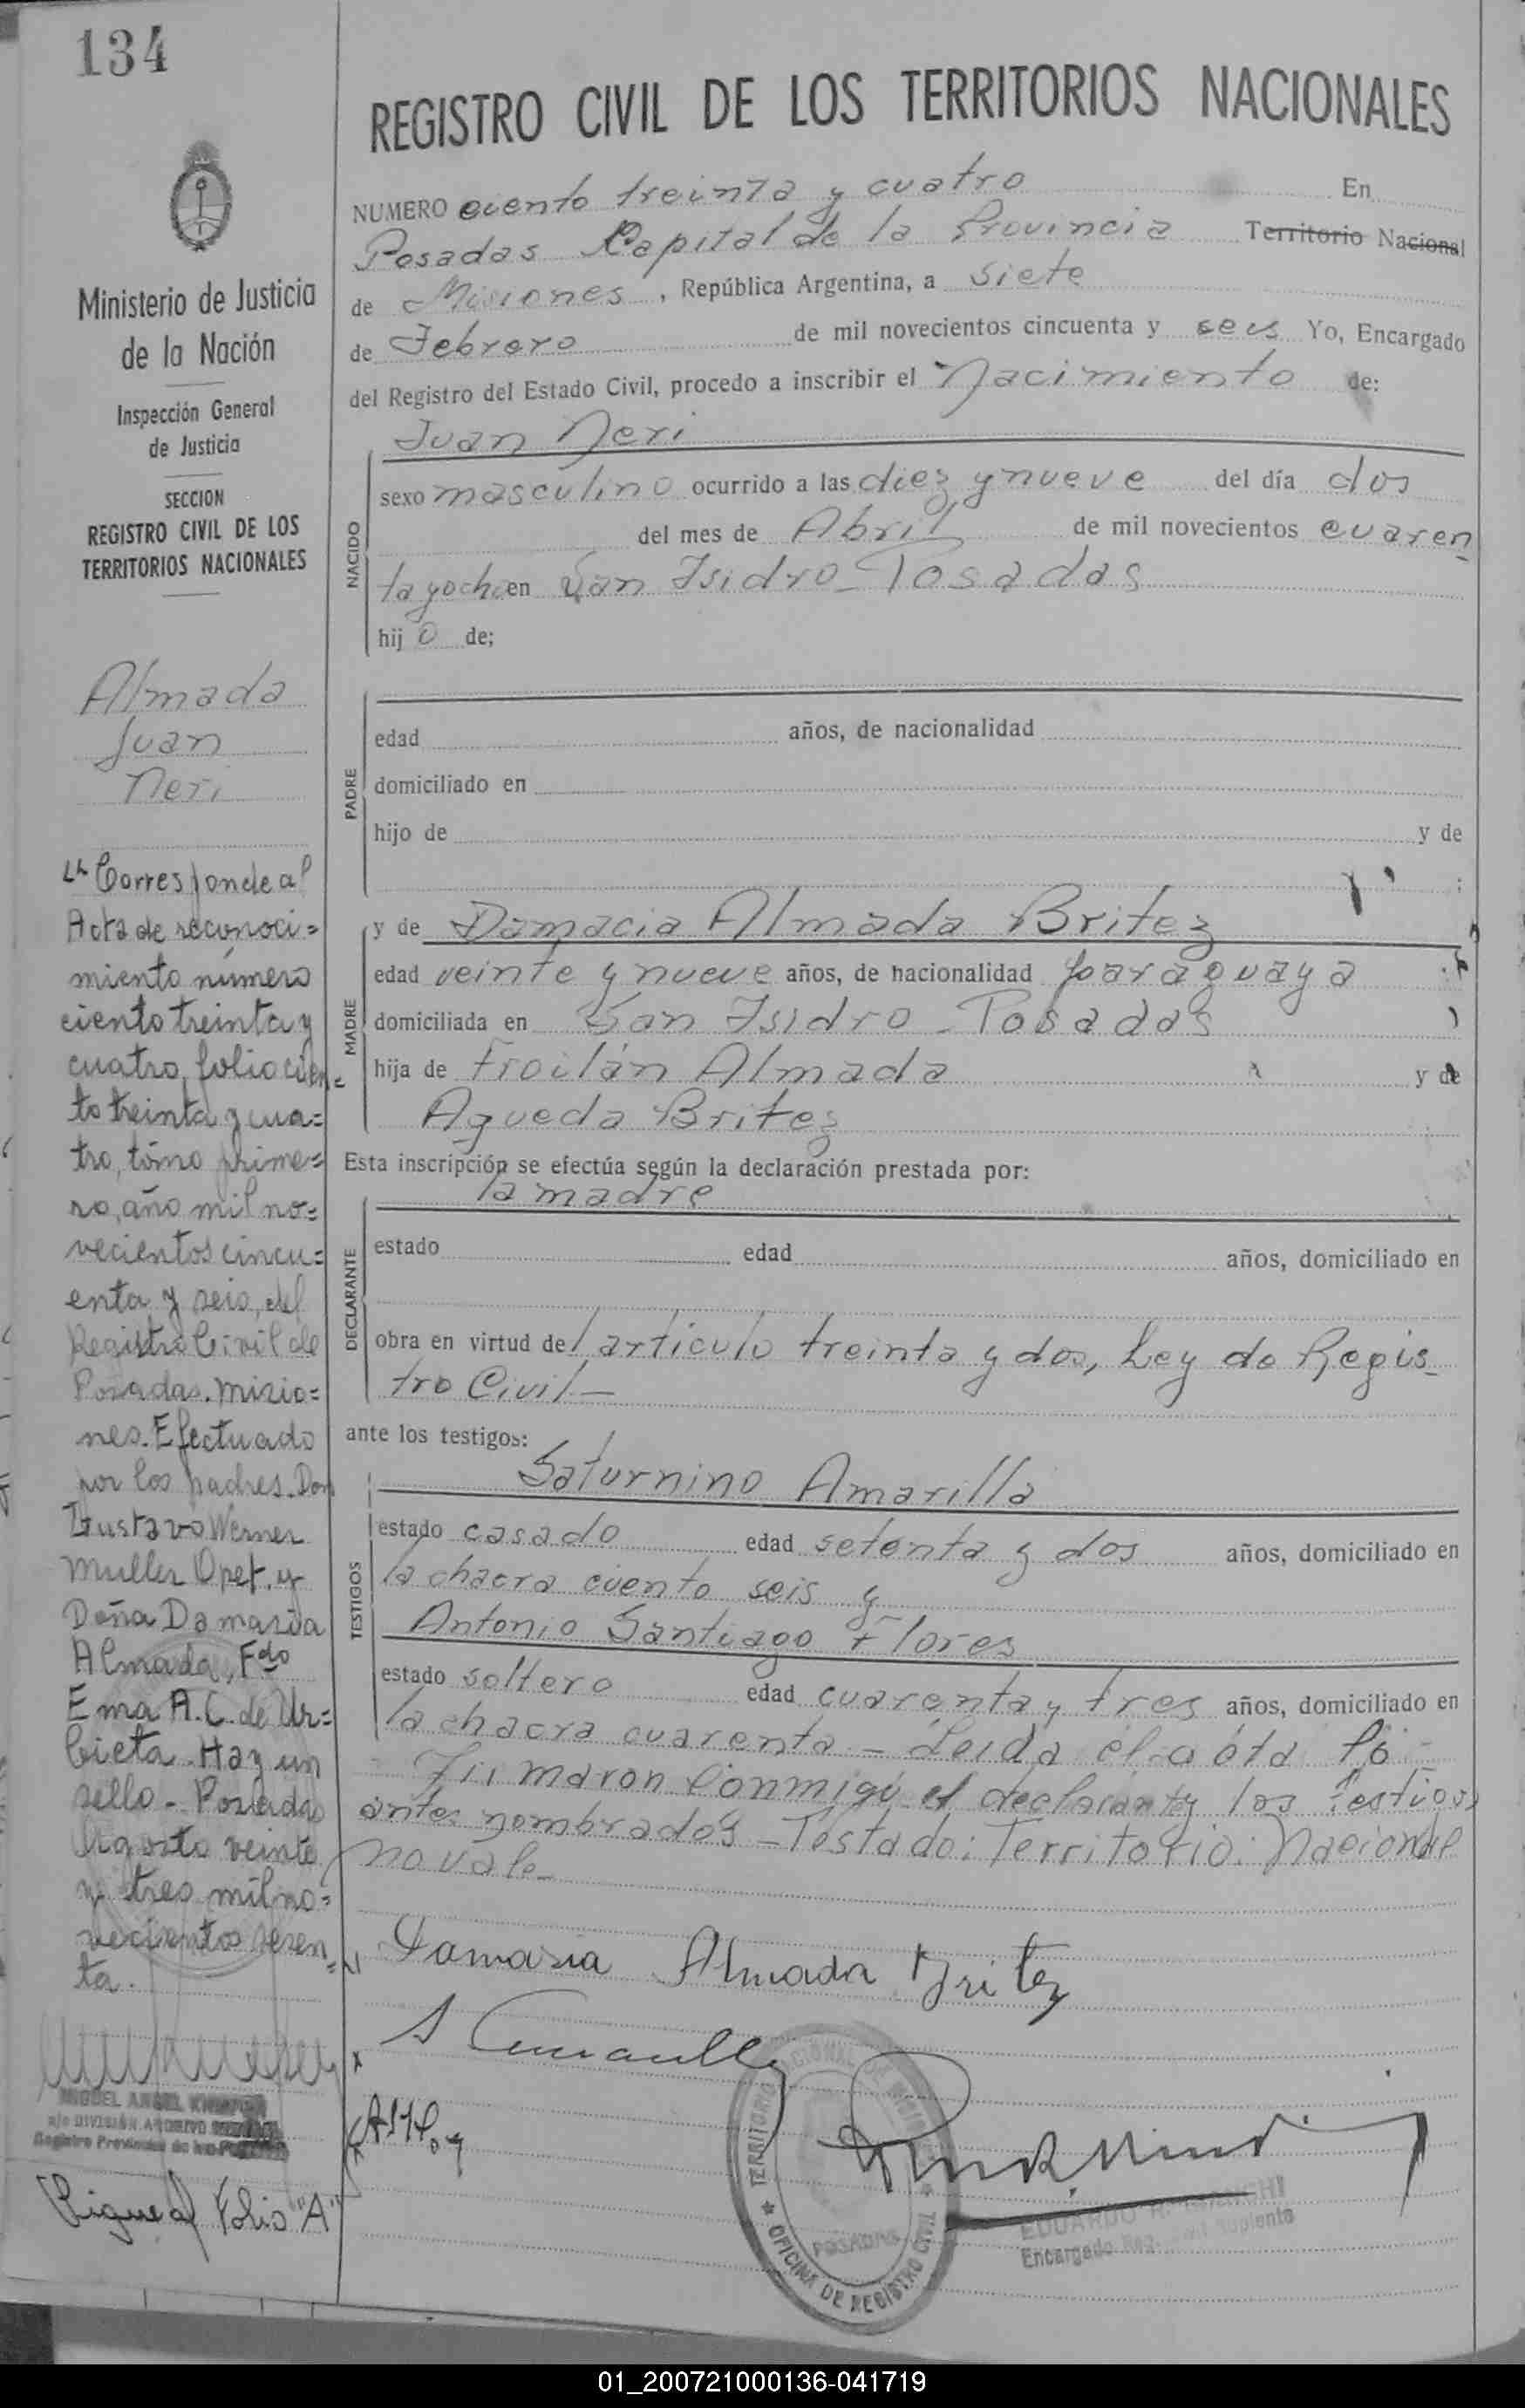 134
Ministerio de Justicia
de la Nación
Inspección General
de Justicia
SECCION
REGISTRO CIVIL DE LOS
TERRITORIOS NACIONALES
Almada
Juan
Neri
Corresponde al
Acta de reconoci=
miento número
ciento treinta y
cuatro, folio cien=
to treinta y cua=
tro, tomo prime=
ro, año mil no=
vecientos cincu=
enta y seis, del
Registro Civil de
Posadas. Misio=
nes. Efectuado
por los padres. Don
Gustavo Werner
Muller Opet. y
Doña Damasia
Almada, Fdo
Ema A. C. de Ur=
bieta. Hay un
sello. Posadas
Agosto veinte
y tres mil no=
vecientos sesen=
ta.
MIGUEL ANGEL
a/c DIVISIÓN ARCHIVO
Registro Provincial de las
Sigue al Folio "A"
REGISTRO CIVIL DE LOS TERRITORIOS NACIONALES
NUMERO ciento treinta y cuatro En
Posadas Capital de la Provincia Territorio Nacional
de Misiones, República Argentina, a siete
de Febrero de mil novecientos cincuenta y seis Yo, Encargado
del Registro del Estado Civil, procedo a inscribir el Nacimiento de:
Juan Neri
NACIDO
sexo masculino ocurrido a las diez y nueve del día dos
del mes de Abril de mil novecientos cuaren
ta y ocho en San Isidro - Posadas
hij o de;
PADRE
edad años, de nacionalidad
domiciliado en
hijo de y de
MADRE
y de Damacia Almada Britez
edad veinte y nueve años, de nacionalidad paraguaya
domiciliada en San Isidro - Posadas
hija de Froilán Almada y de
Agueda Britez
Esta inscripción se efectúa según la declaración prestada por:
la madre
DECLARANTE
estado edad años, domiciliado en
obra en virtud del artículo treinta y dos, Ley de Regis-
tro Civil -
ante los testigos:
Saturnino Amarilla
TESTIGOS
estado casado edad setenta y dos años, domiciliado en
la chacra ciento seis y
Antonio Santiago Flores
estado soltero edad cuarenta y tres años, domiciliado en
la chacra cuarenta - Leida el acta la
firmaron conmigo el declarante y los testigos
antes nombrados - Testado: Territorio: Nacional
no vale -
Damasia Almada Britez
TERRITORIO NACIONAL DE MISIONES
OFICINA DE REGISTRO CIVIL
POSADAS
EDUARDO
Encargado Reg. Civil Suplente
01_200721000136-041719